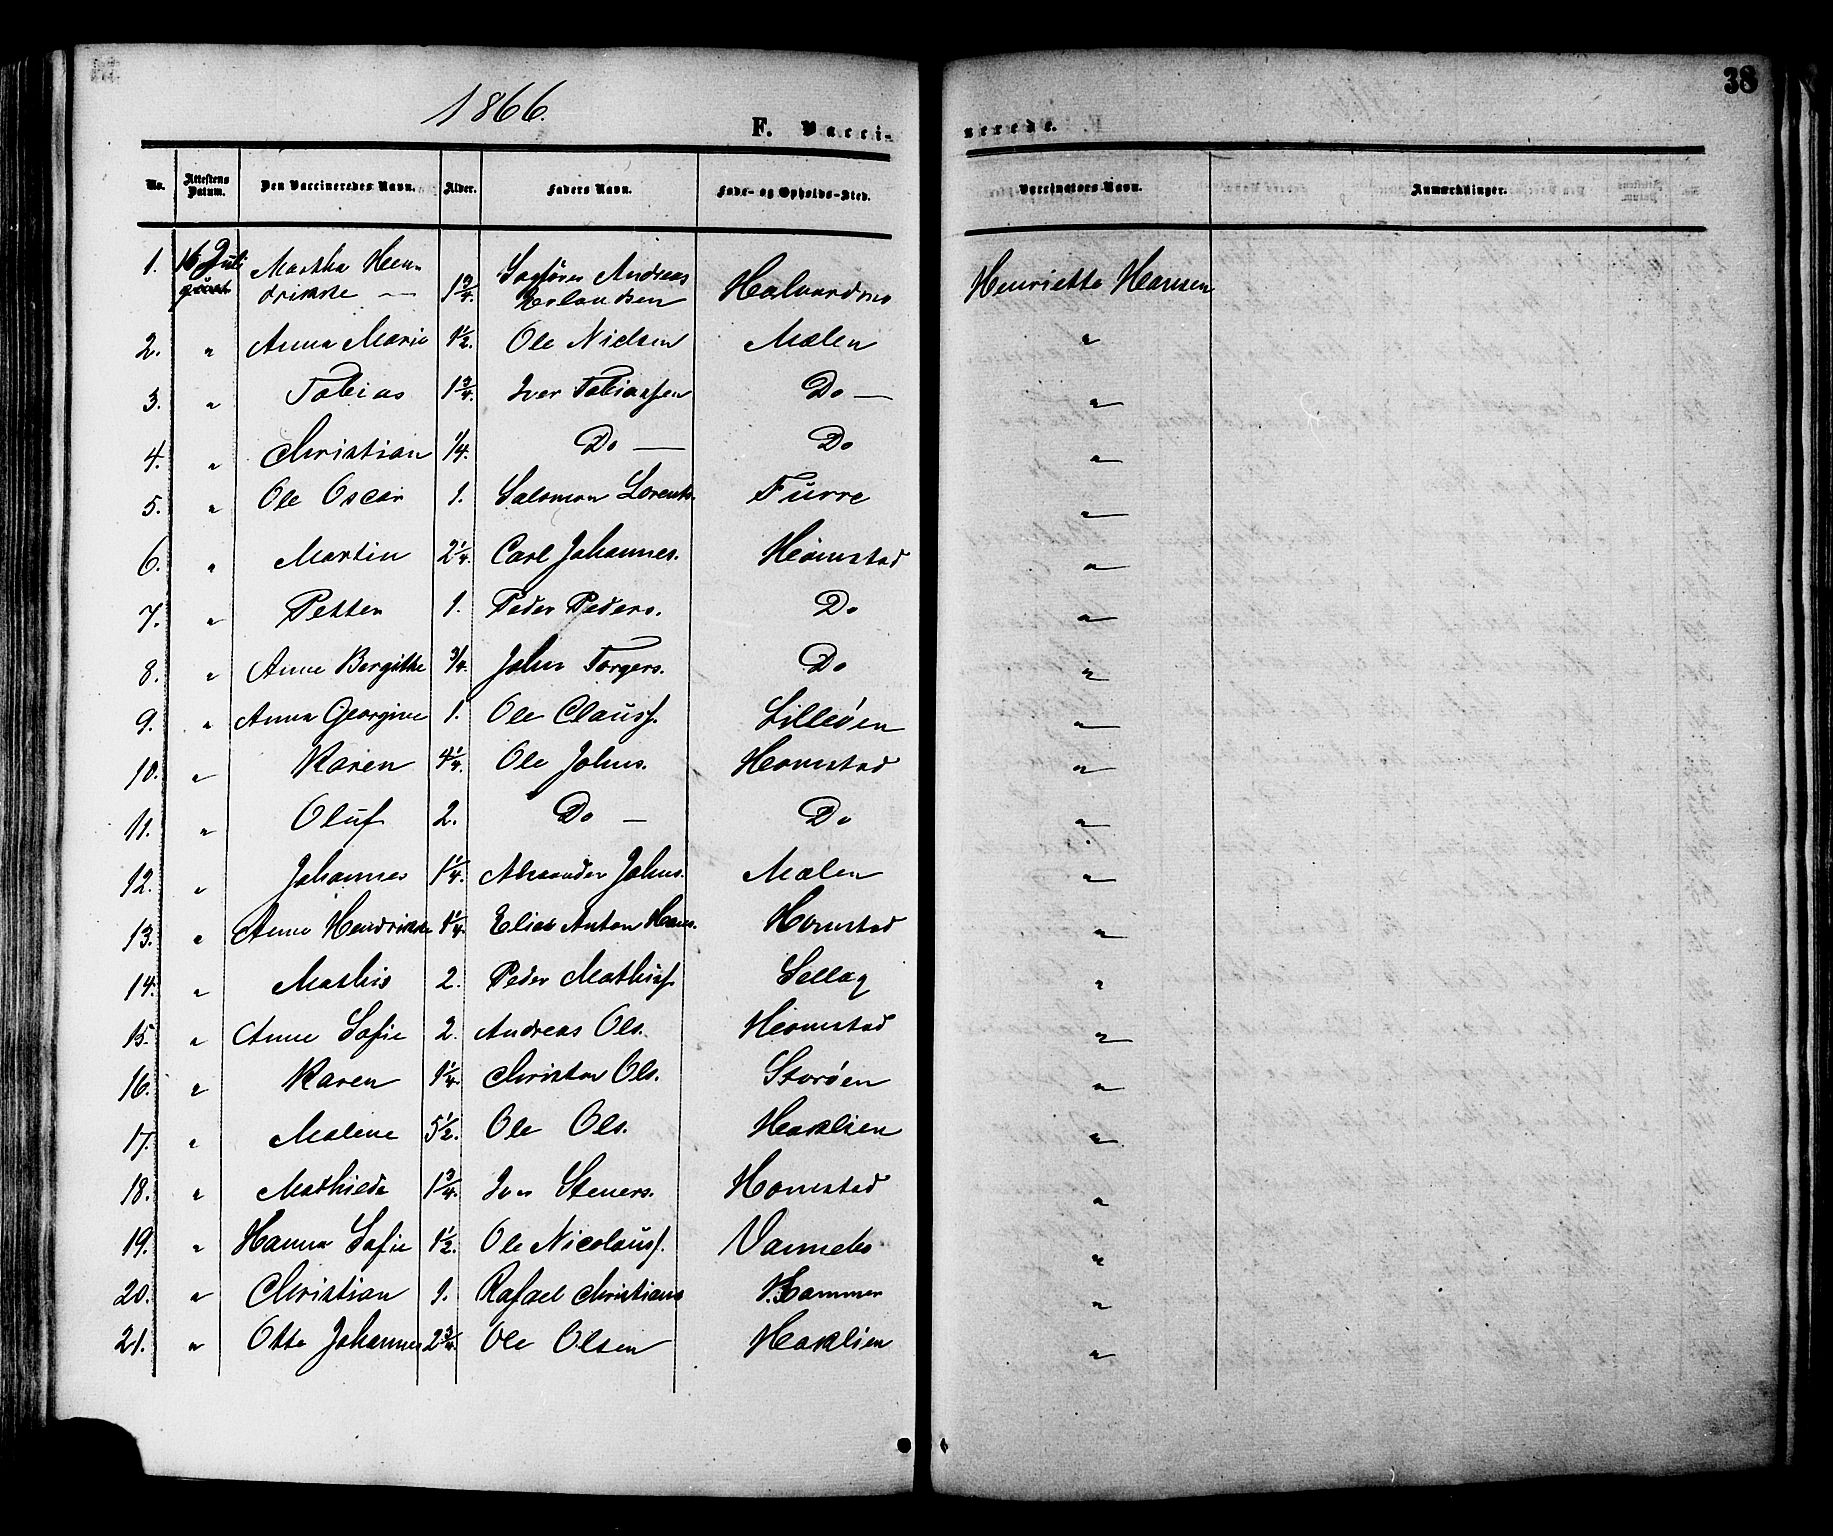 38
1866.
F. Vacci-
nerede.
No. Attestens Datum. Den Vaccineredes Navn. Alder. Faders Navn. Føde- og Opholds-Sted. Vaccinators Navn. Anmærkninger.
1. 16 Juli Martha Hen-
drikke — 1 3/4. Andreas Erlandsen Henriette Hansen
2. " Anna Marie 1 1/2. Ole Nielsen Mælen "
3. " Tobias 1 3/4. Iver Tobiassen Do — "
4. " Christian 1/4. Do — Do "
5. " Ole Oscar 1. Salomon Lorents. Furre "
6. " Martin 2 1/4. Carl Johannes. Homstad "
7. " Petter 1. Peder Peders. Do "
8. " Anne Bergitte 3/4. John Torgers. Do "
9. " Anna Georgine 1. Ole Clausf. Lilleøen "
10. " Karen 4 1/4. Ole Johns. Homstad "
11. " Oluf 2. Do — Do "
12. " Johannes 1 1/4. Alexander Johns. Mælen "
13. " Anne Hendrikke 1 1/4. Elias Anton Hans. Homstad "
14. " Mathis 2. Peder Mathisf. "
15. " Anne Sofie 2. Andreas Ols. Homstad "
16. " Karen 1 1/4. Christen Ols. Storøen "
17. " Malene 5 1/2. Ole Ols. Haklien "
18. " Mathilde 1 3/4. Iver Steners. Homstad "
19. " Hanna Sofie 1 1/2. Ole Nicolausf. Vannebo "
20. " Christian 1. Rafael Christians "
21. " Otto Johannes 2 3/4. Ole Olsen Haklien "